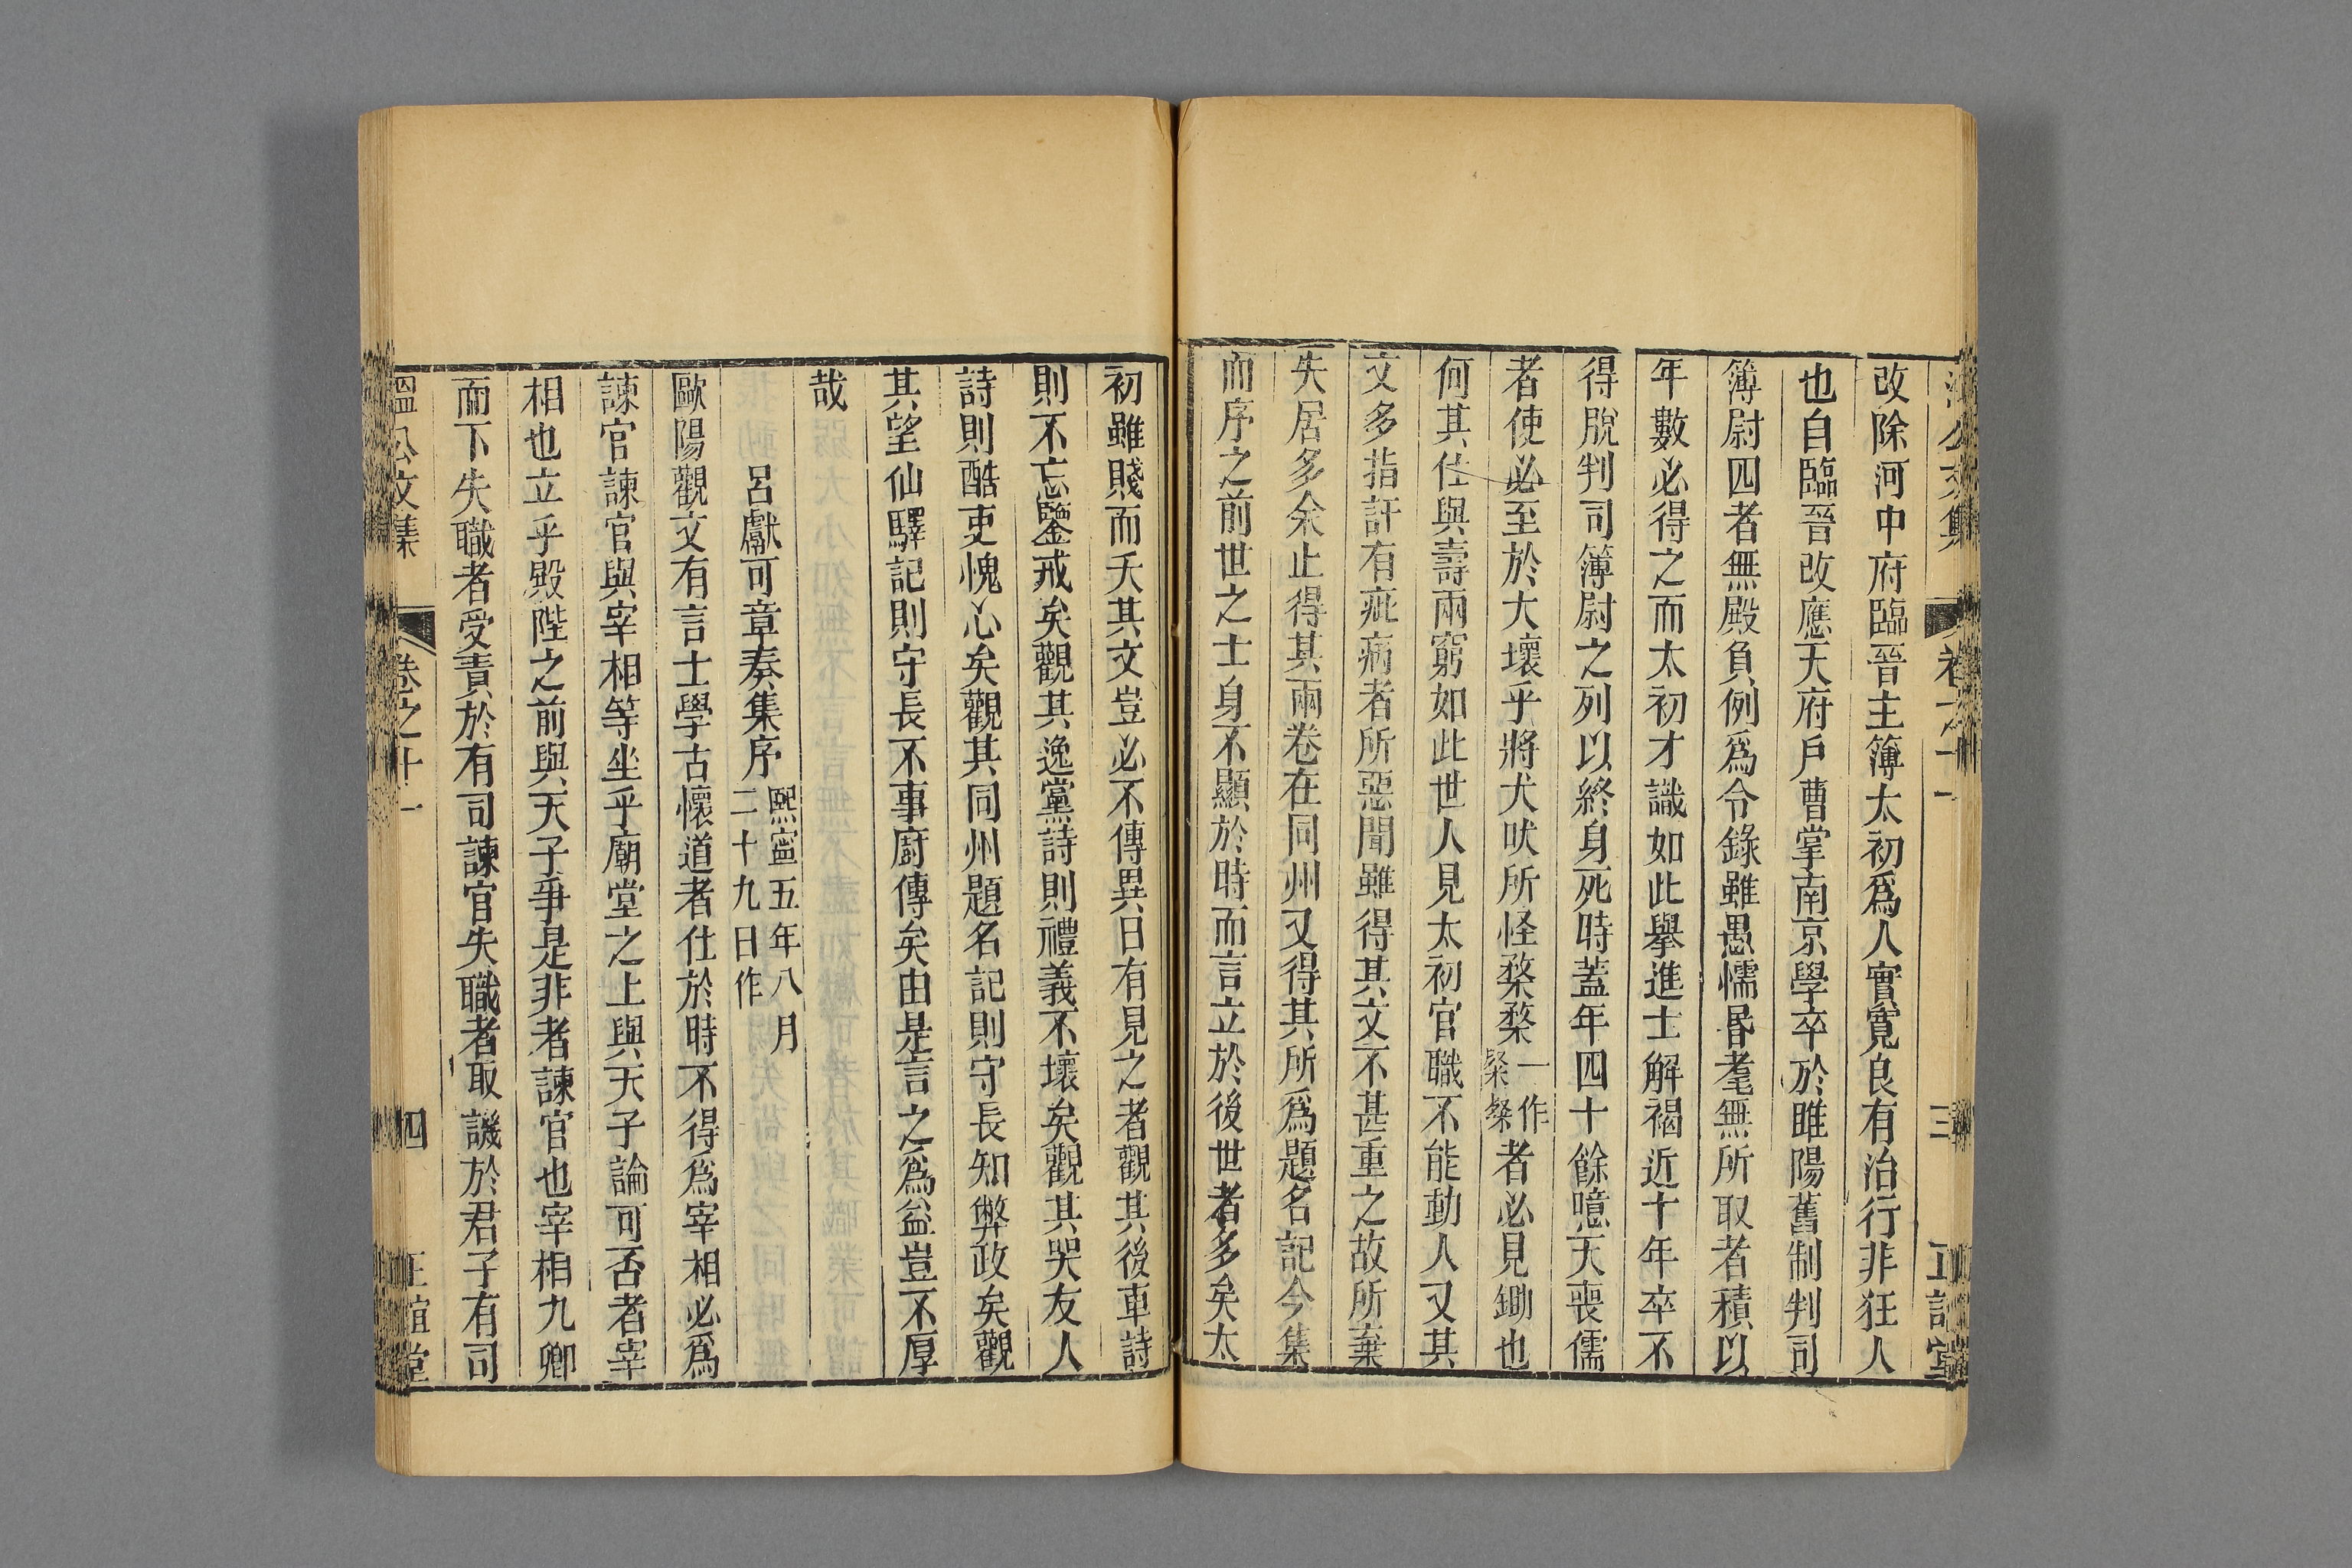 改除河中府臨晉主簿太初爲人實寬良有治行非狂人
也自臨晉改應天府戶曹掌南京學卒於睢陽舊制判司
簿尉四者無殿負例爲令錄雖愚懦昬耄無所取者積以
年數必得之而太初才識如此擧進士解褐近十年卒不
得脫判司簿尉之列以終身死時蓋年四十餘噫天喪儒
者使必至於大壞乎將犬吠所怪桀桀一作粲粲者必見鋤也
何其仕與壽兩窮如此世人見太初官職不能動人又其
文多指訐有疵病者所惡聞雖得其文不甚重之故所棄
失居多余止得其兩卷在同州又得其所爲題名記今集
而序之前世之士身不顯於時而言立於後世者多矣太
初雖賤而夭其文豈必不傳異日有見之者觀其後車詩
則不忘鑒戒矣觀其逸黨詩則禮義不壞矣觀其哭友人
詩則酷吏愧心矣觀其同州題名記則守長知弊政矣觀
其望仙驛記則守長不事廚傳矣由是言之爲益豈不厚
哉
呂獻可章奏集序熙寧五年八月二十九日作
歐陽觀文有言士學古懷道者仕於時不得爲宰相必爲
諫官諫官與宰相等坐乎廟堂之上與天子論可否者宰
相也立乎殿陛之前與天子爭是非者諫官也宰相九卿
而下失職者受責於有司諫官失職者取譏於君子有司
溫公文集 卷之十一 四 正誼堂